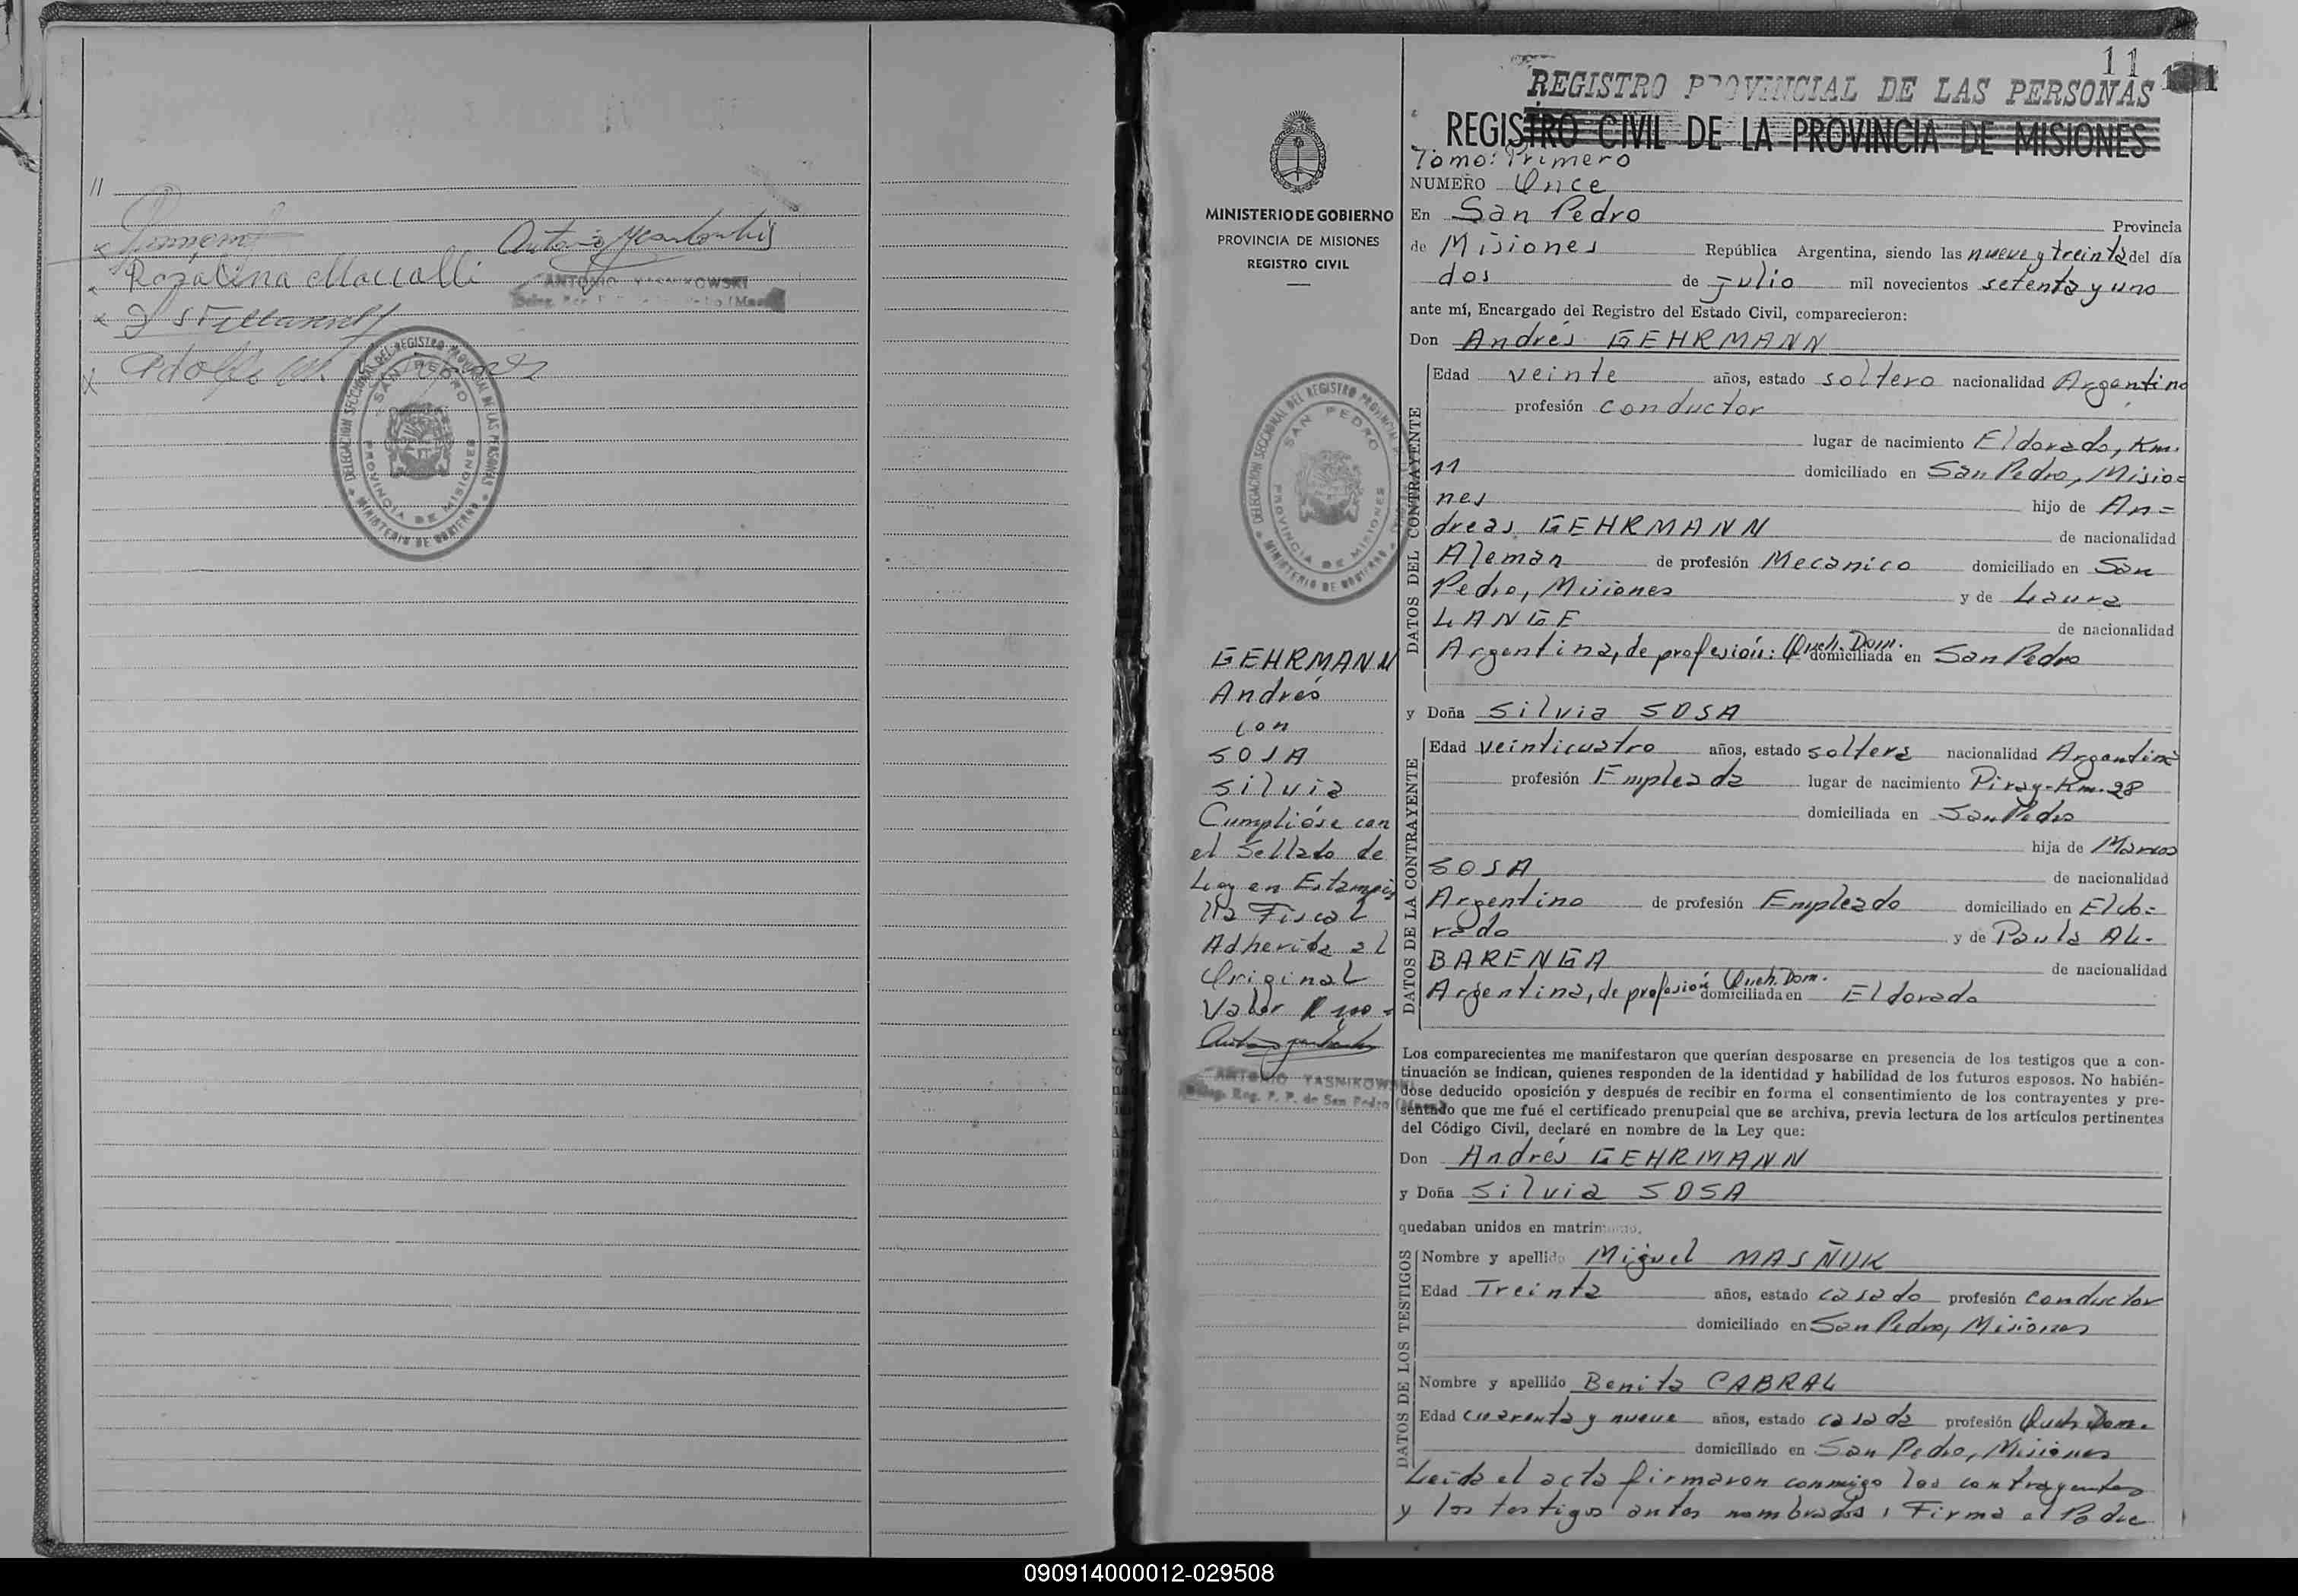 11
Rozalina
Antonio
ANTONIO YASNIKOWSKI
Adolfo
DELEGACION SECCIONAL DEL REGISTRO PROVINCIAL DE LAS PERSONAS
SAN PEDRO
PROVINCIA DE MISIONES
MINISTERIO DE GOBIERNO
11
REGISTRO PROVINCIAL DE LAS PERSONAS
REGISTRO CIVIL DE LA PROVINCIA DE MISIONES
Tomo: Primero
NUMERO Once
MINISTERIO DE GOBIERNO
PROVINCIA DE MISIONES
REGISTRO CIVIL
En San Pedro Provincia
de Misiones República Argentina, siendo las nueve y treinta del día
dos de Julio mil novecientos setenta y uno
ante mí, Encargado del Registro del Estado Civil, comparecieron:
Don Andrés GEHRMANN
DATOS DEL CONTRAYENTE
Edad veinte años, estado soltero nacionalidad Argentino
profesión conductor
lugar de nacimiento Eldorado, Km.
11 domiciliado en San Pedro, Misio=
nes hijo de An=
dreas GEHRMANN de nacionalidad
Aleman de profesión Mecanico domiciliado en San
Pedro, Misiones y de Laura
LANGE de nacionalidad
Argentina, de profesión: Queh. Dom. domiciliada en San Pedro
DELEGACION SECCIONAL DEL REGISTRO PROVINCIAL
SAN PEDRO
PROVINCIA DE MISIONES
MINISTERIO DE GOBIERNO
GEHRMANN
Andrés
con
SOSA
Silvia
Cumplióse con
el Sellado de
Ley en Estampi
lla Fiscal
Adherida al
Original
Valor
ANTONIO YASNIKOWSKI
Deleg. Reg. P. P. de San Pedro (Mnes)
y Doña Silvia SOSA
DATOS DE LA CONTRAYENTE
Edad veinticuatro años, estado soltera nacionalidad Argentina
profesión Empleada lugar de nacimiento Piray-Km. 28
domiciliada en San Pedro
hija de Marcos
SOSA de nacionalidad
Argentino de profesión Empleado domiciliado en Eldo=
rado y de Paula AL-
BARENGA de nacionalidad
Argentina, de profesión Queh. Dom. domiciliada en Eldorado
Los comparecientes me manifestaron que querían desposarse en presencia de los testigos que a con-
tinuación se indican, quienes responden de la identidad y habilidad de los futuros esposos. No habién-
dose deducido oposición y después de recibir en forma el consentimiento de los contrayentes y pre-
sentado que me fué el certificado prenupcial que se archiva, previa lectura de los artículos pertinentes
del Código Civil, declaré en nombre de la Ley que:
Don Andrés GEHRMANN
y Doña Silvia SOSA
quedaban unidos en matrimonio.
DATOS DE LOS TESTIGOS
Nombre y apellido Miguel MASÑUK
Edad Treinta años, estado casado profesión conductor
domiciliado en San Pedro, Misiones
Nombre y apellido Benita CABRAL
Edad cuarenta y nueve años, estado casada profesión Queh. Dom.
domiciliado en San Pedro, Misiones
Leída el acta firmaron conmigo los contrayentes
y los testigos antes nombrados, Firma el Padre
090914000012-029508